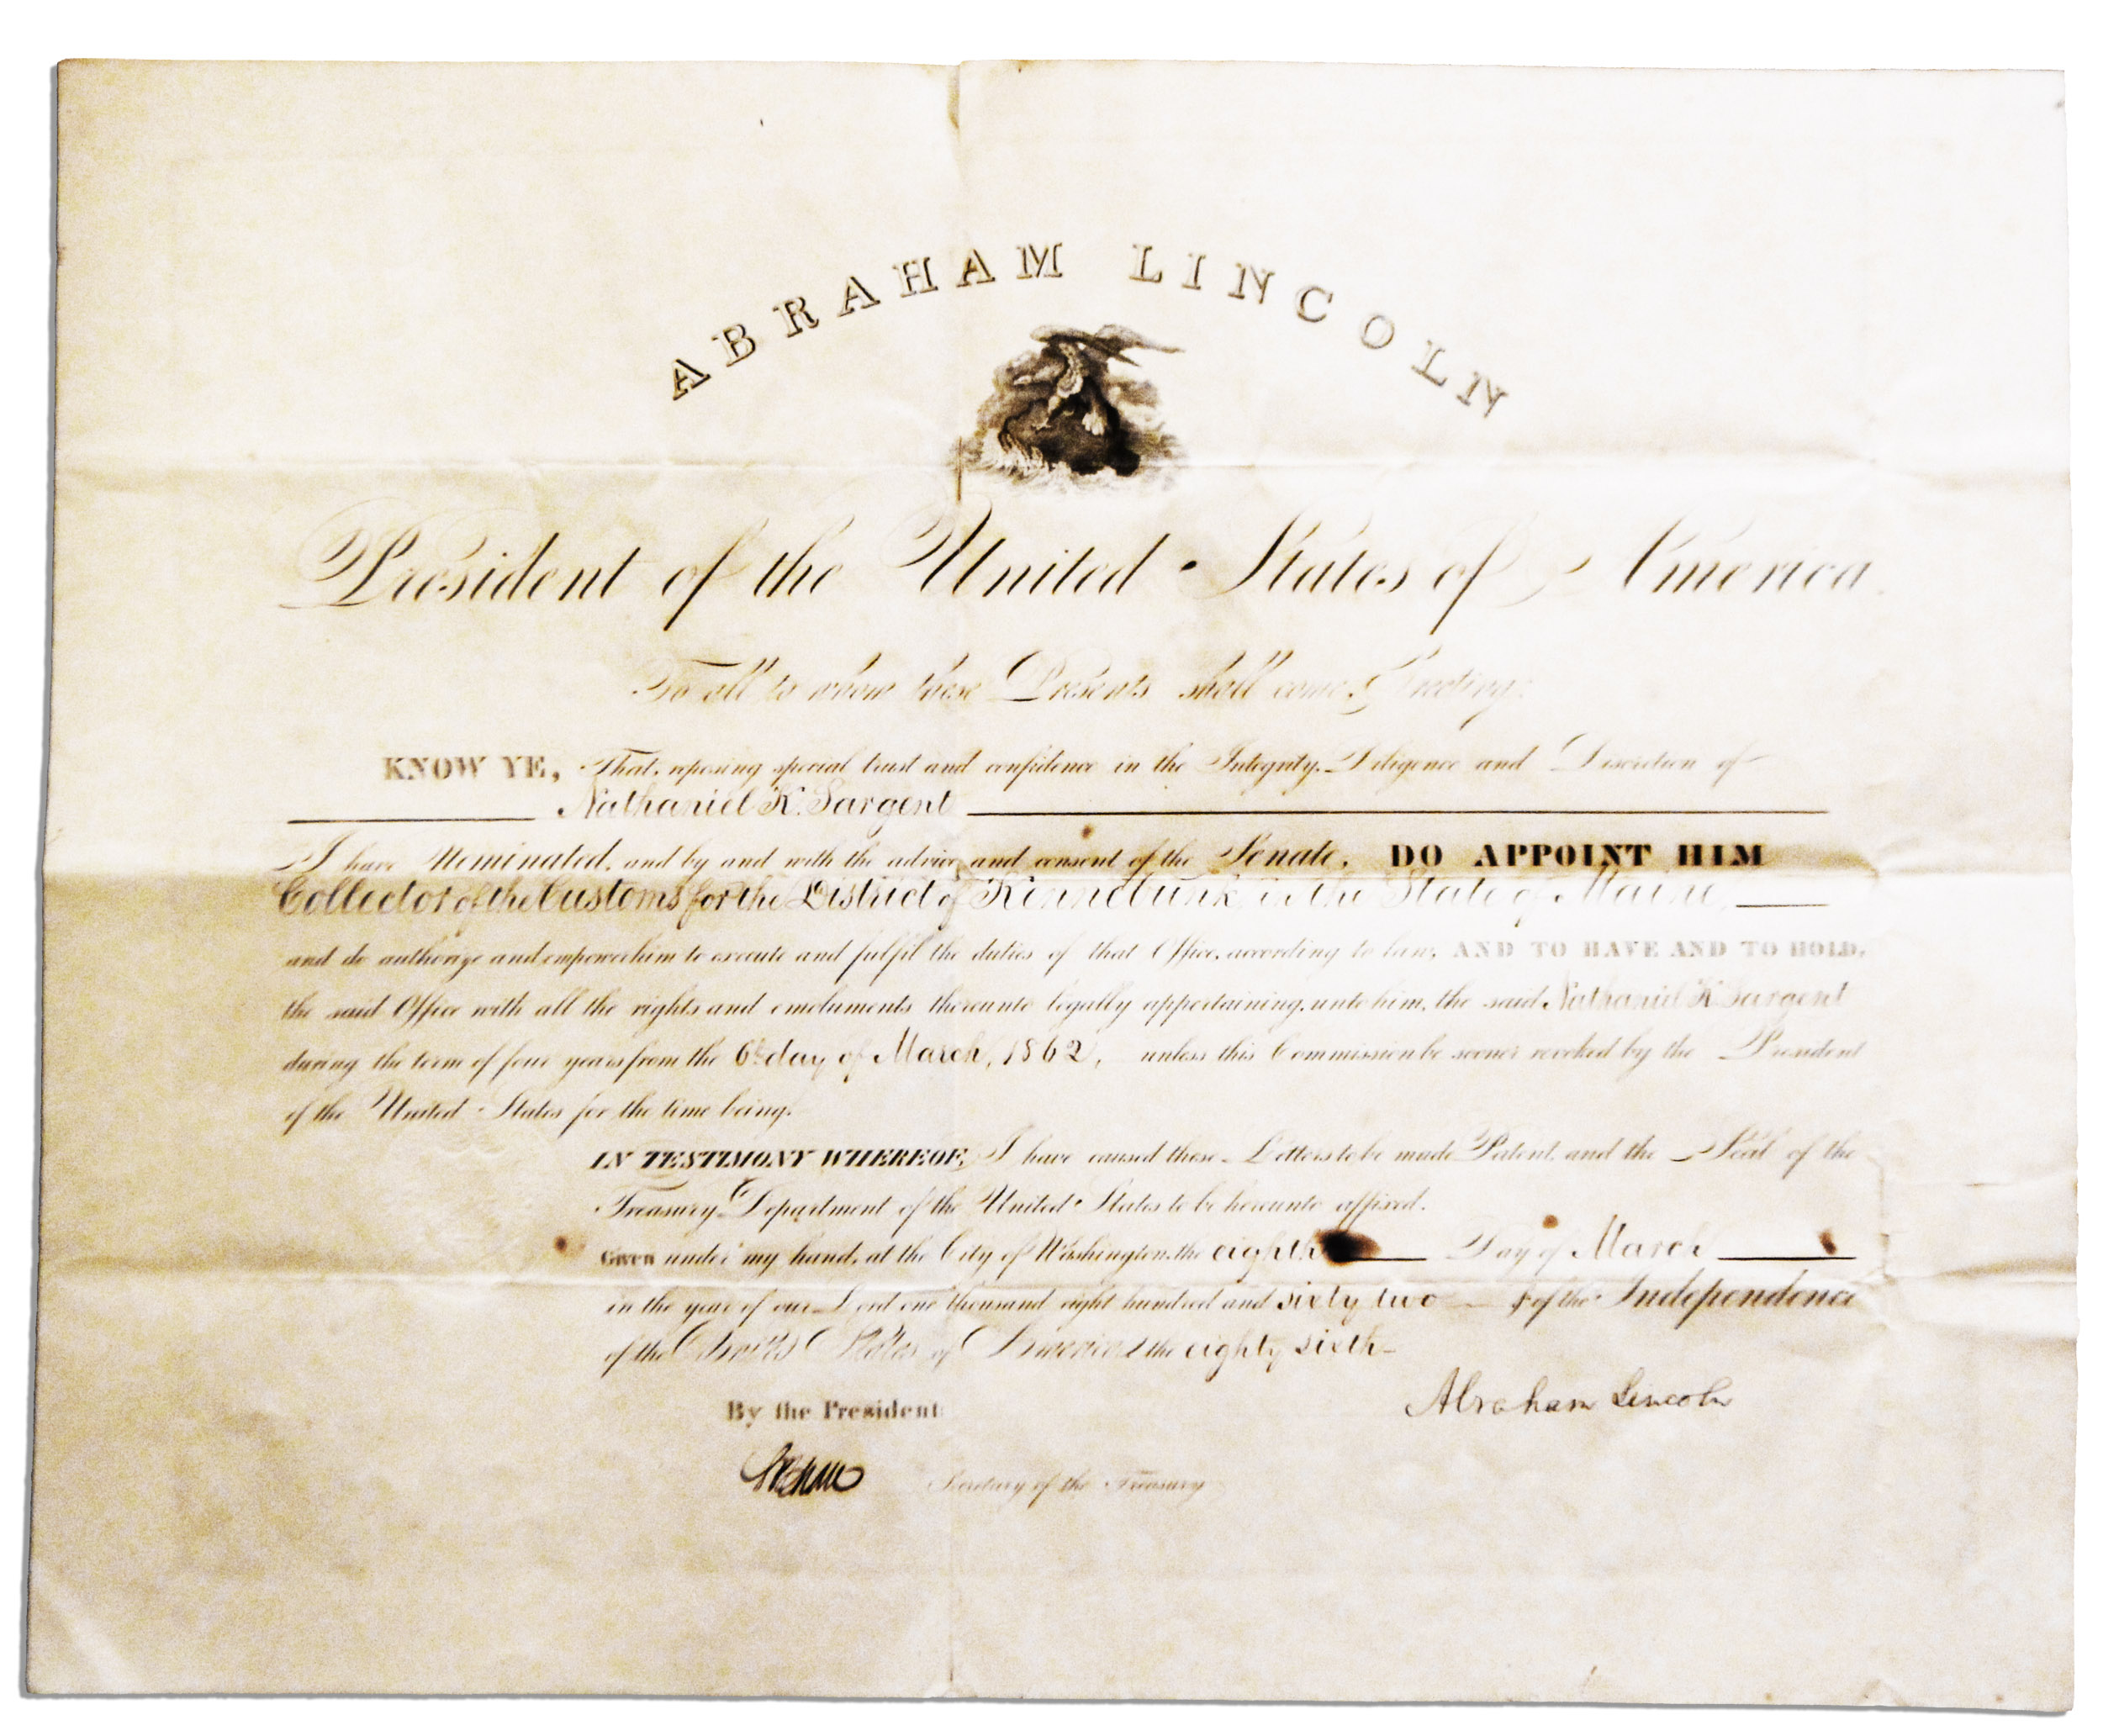 ABRAHAM LINCOLN
President of the United States of America.
To all to whom these Presents shall come, Greeting:
KNOW YE, That, reposing special trust and confidence in the Integrity, Diligence and Discretion of
Nathaniel K. Sargent
I have Nominated, and by and with the advice and consent of the Senate, DO APPOINT HIM
Collector of the Customs for the District of Kinnebunk, in the State of Maine,
and do authorize and empower him to execute and fulfil the duties of that Office, according to law; AND TO HAVE AND TO HOLD,
the said Office with all the rights and emoluments thereunto legally appertaining, unto him, the said Nathaniel K. Sargent
during the term of four years from the 6th day of March, 1862, unless this Commission be sooner revoked by the President
of the United States for the time being.
IN TESTIMONY WHEREOF, I have caused these Letters to be made Patent, and the Seal of the
Treasury Department of the United States to be hereunto affixed.
Given under my hand, at the City of Washington, the eighth Day of March
in the year of our Lord one thousand eight hundred and sixty two & of the Independence
of the United States of America, the eighty sixth
By the President:
Abraham Lincoln
Secretary of the Treasury